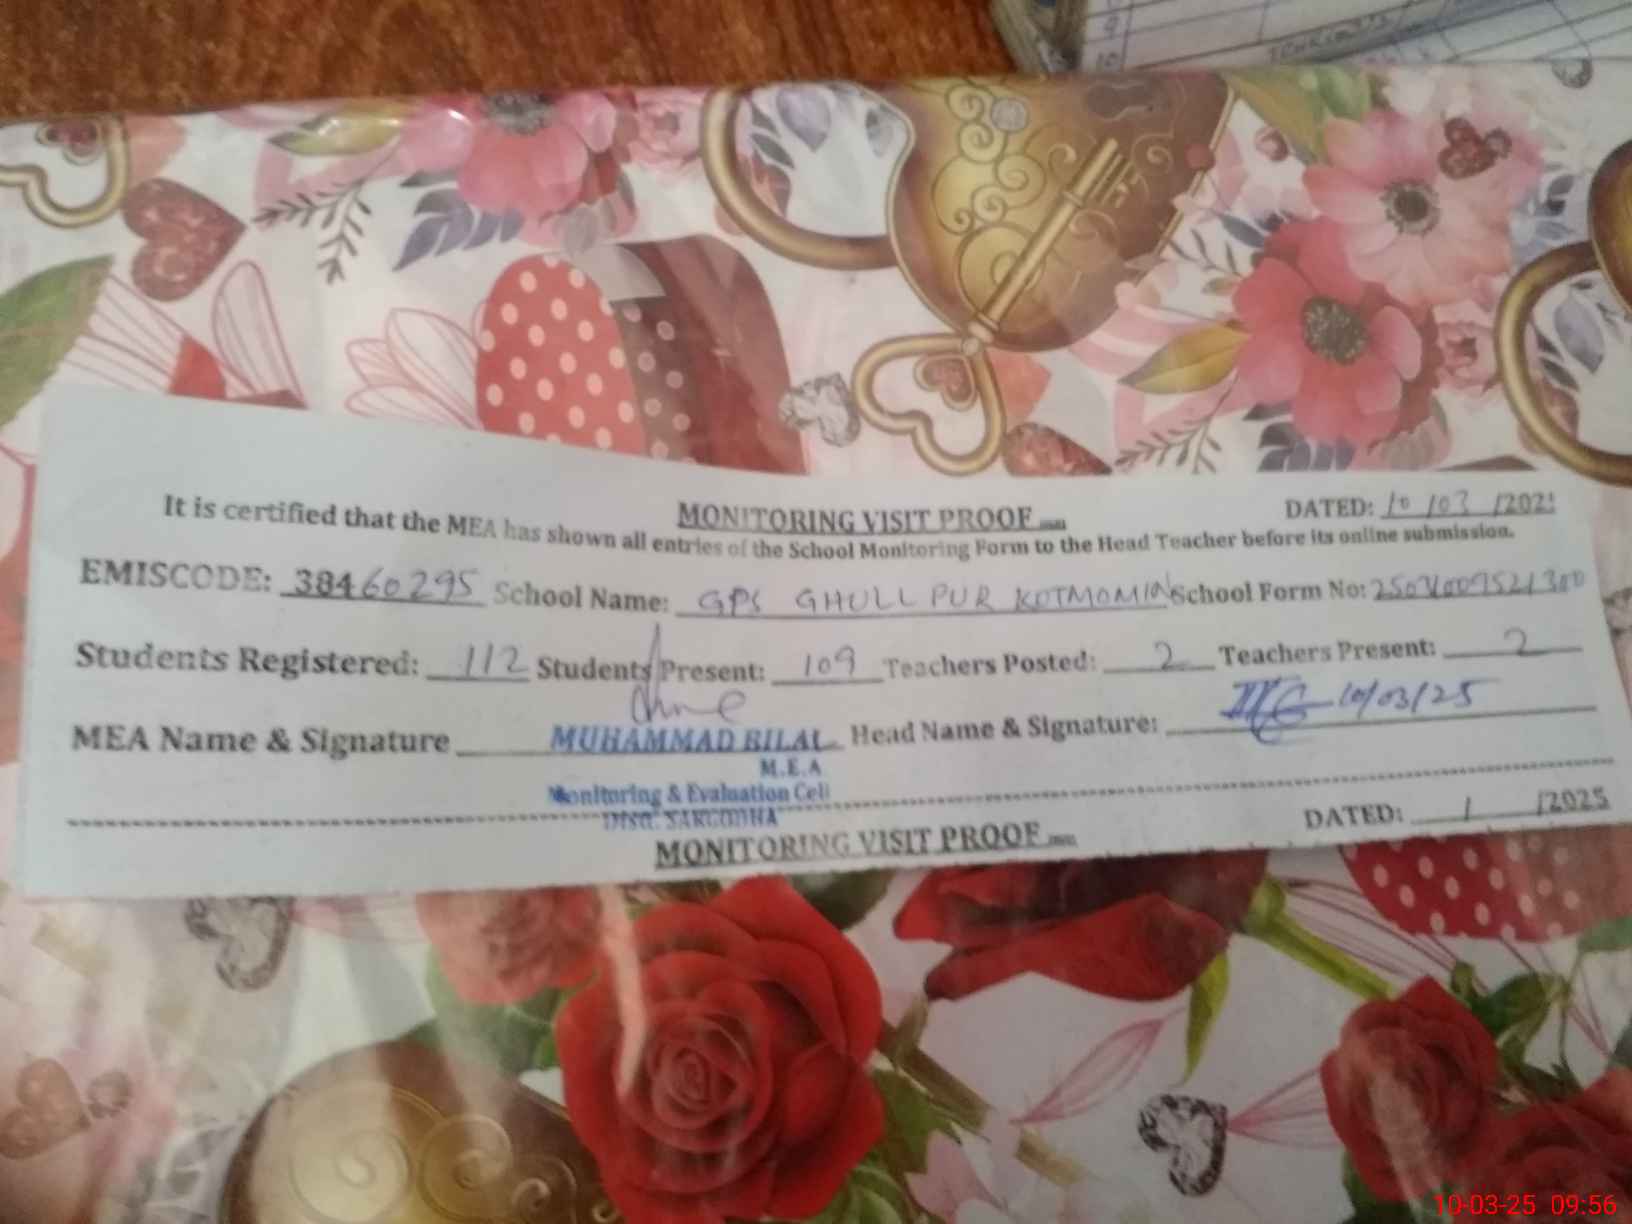 MONITORING VISIT PROOF
DATED: 10 /03 /202
It is certified that the MEA has shown all entries of the School Monitoring Form to the Head Teacher before its online submission.
EMISCODE: 38460295 School Name: GPS GHULL PUR KOTMOMIN School Form No:
Students Registered: 112 Students Present: 109 Teachers Posted: 2 Teachers Present: 2
MEA Name & Signature MUHAMMAD BILAL Head Name & Signature: 10/03/25
M.E.A
Monitoring & Evaluation Cell
Distt: SARGODHA
MONITORING VISIT PROOF
DATED: / /2025
10-03-25 09:56